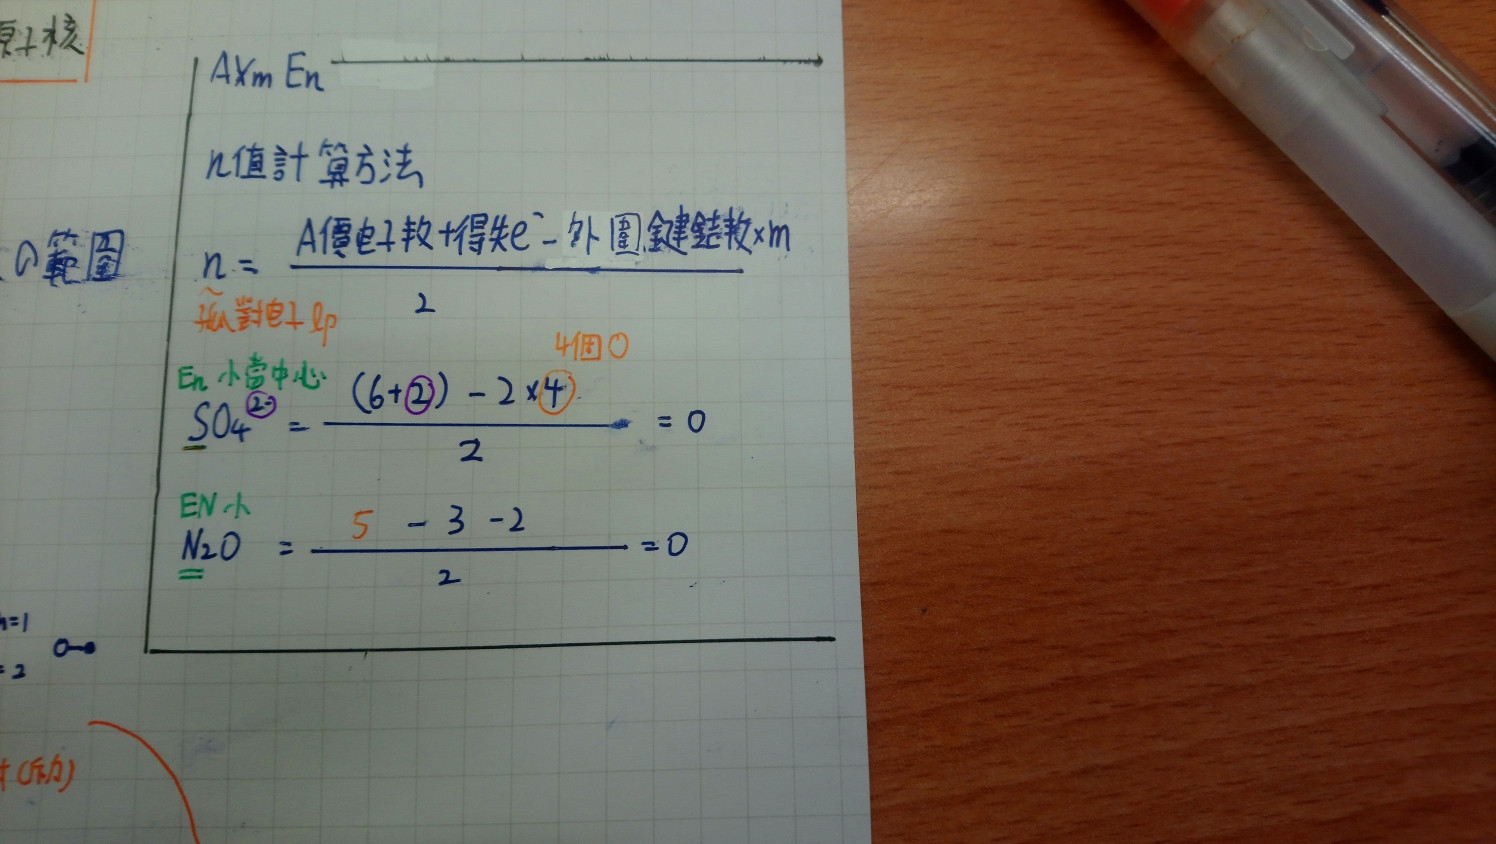 原子核
AXm En
n值計算方法
の範圍
n = A價電子數+得失e⁻ - 外圍鍵結數×m
2
孤對電子 lp
4個O
En 小當中心
SO4 2- = (6+2) - 2×4 = 0
2
EN小
N2O = 5 - 3 - 2 = 0
2
n=1
= 2